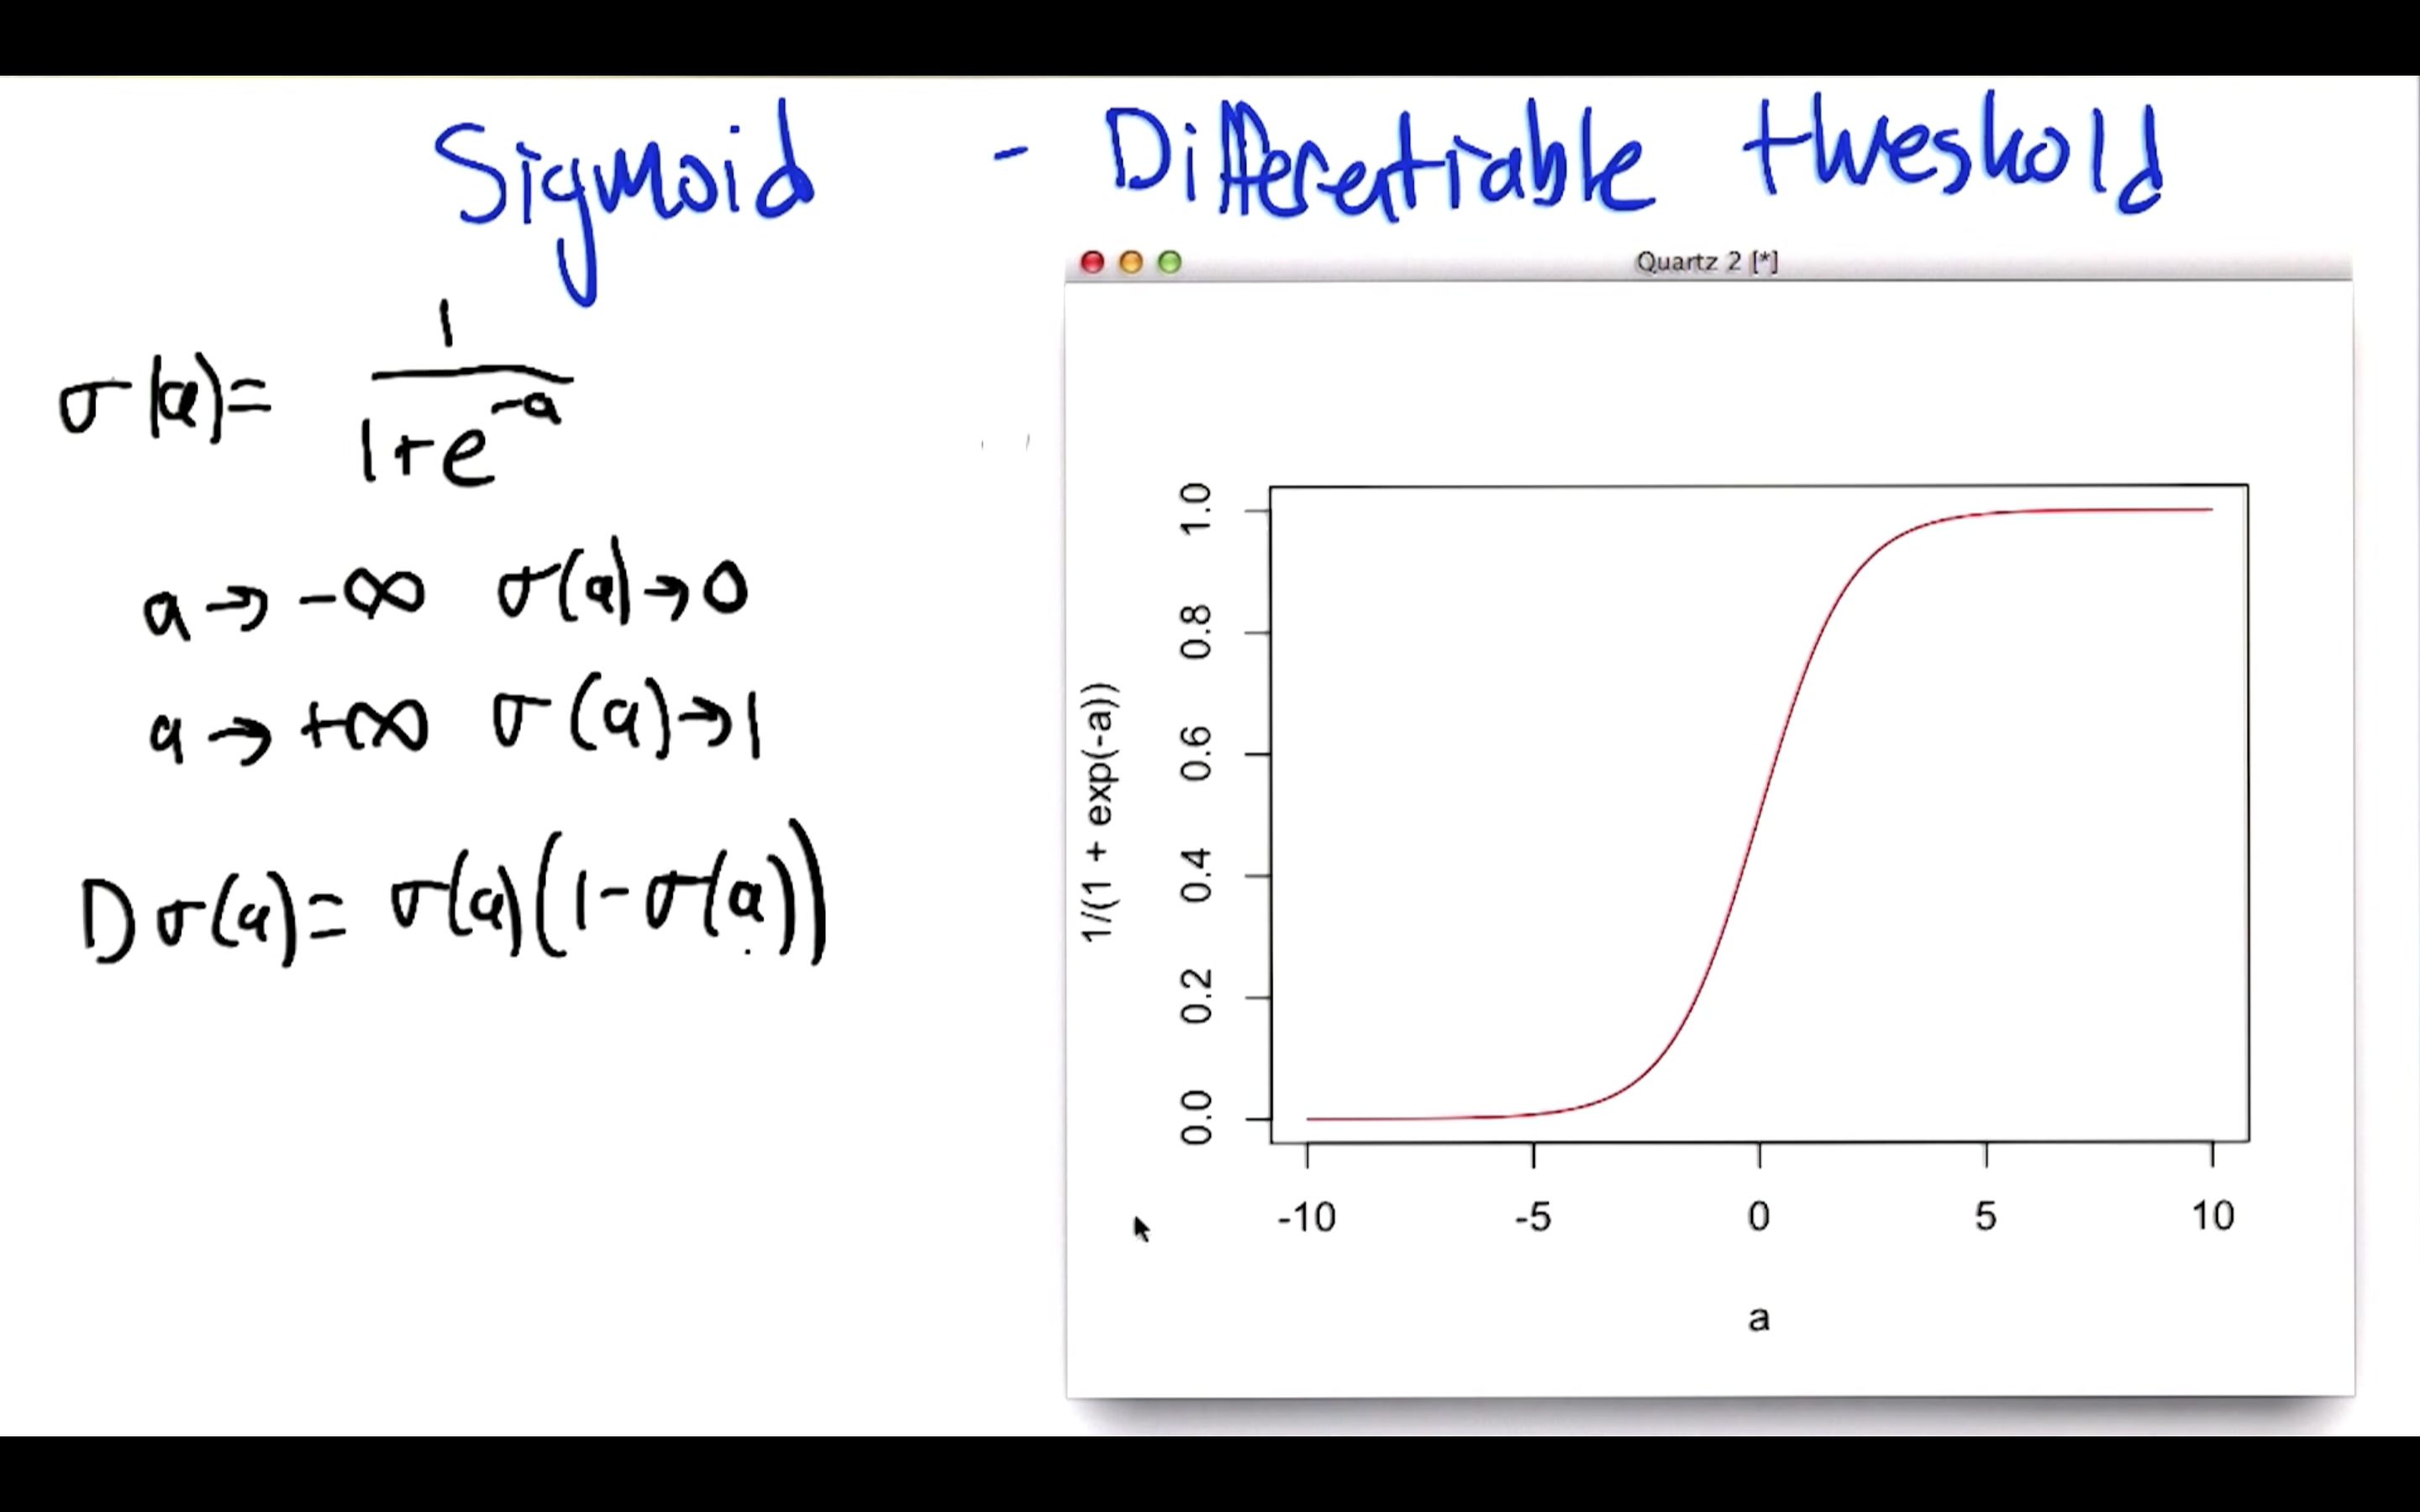 Sigmoid - Differentiable threshold
σ(a) = 1 / (1+e^-a)
a → -∞ σ(a) → 0
a → +∞ σ(a) → 1
Dσ(a) = σ(a)(1-σ(a))
Quartz 2 [*]
1/(1 + exp(-a))
1.0
0.8
0.6
0.4
0.2
0.0
-10 -5 0 5 10
a